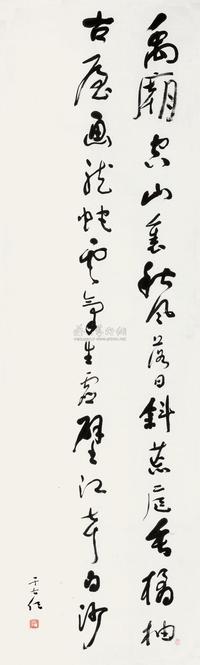 禹廟空山裏秋風落日斜荒庭垂橘柚
古屋画龍蛇雲氣生虛壁江聲走白沙
于右任